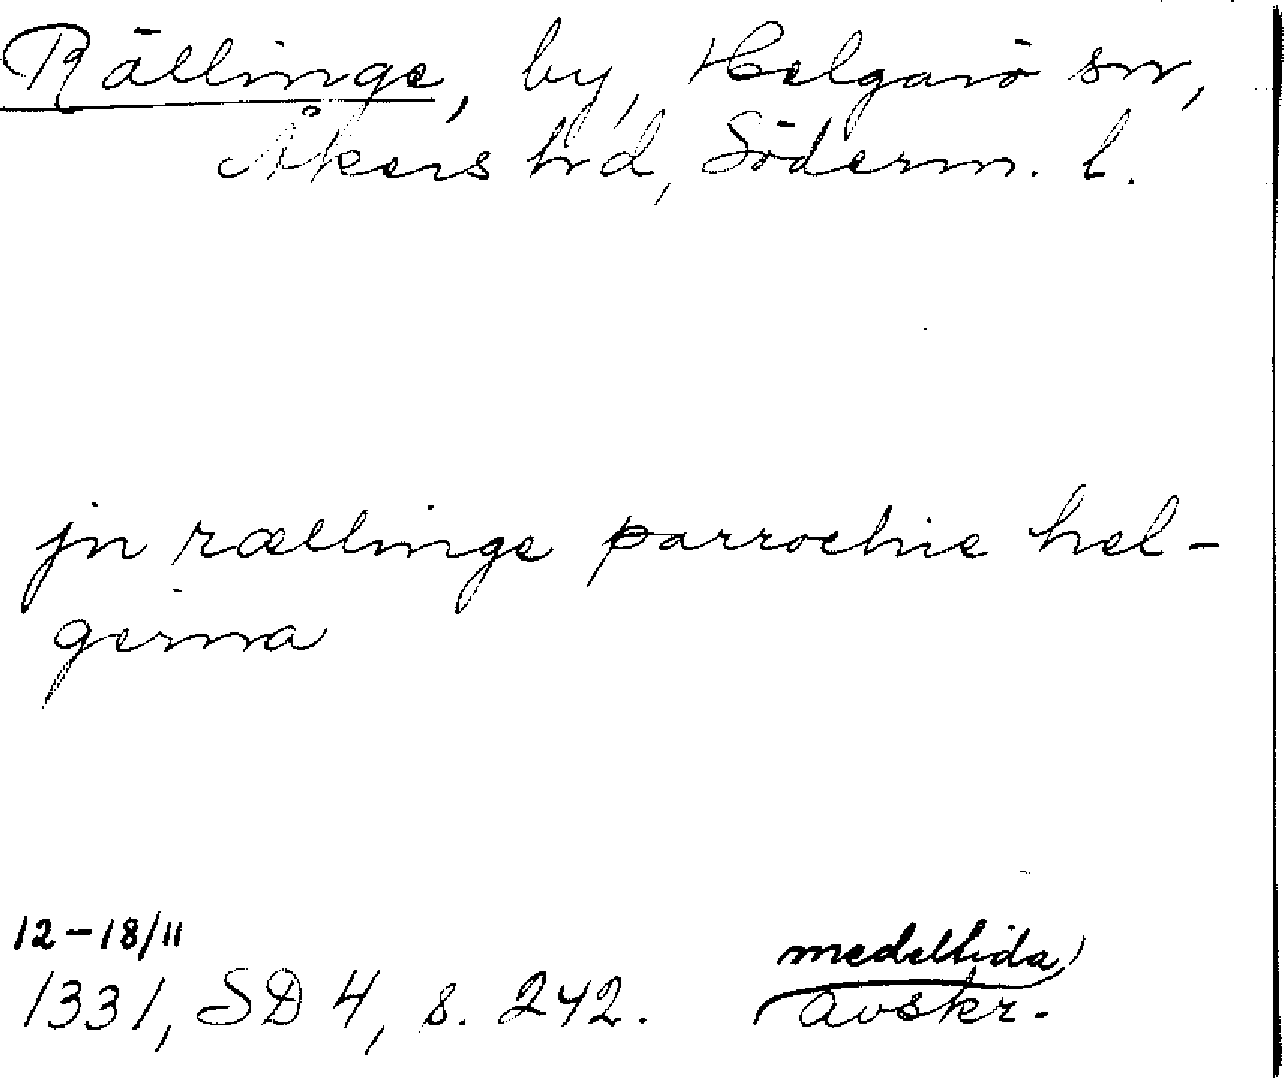 Rällinge, by, Helgarö sn,
Åkers hd, Söderm. l.
jn rællinge parrochie hel-
gerna
12-18/11
medeltida
1331, SD 4, s. 242. avskr.